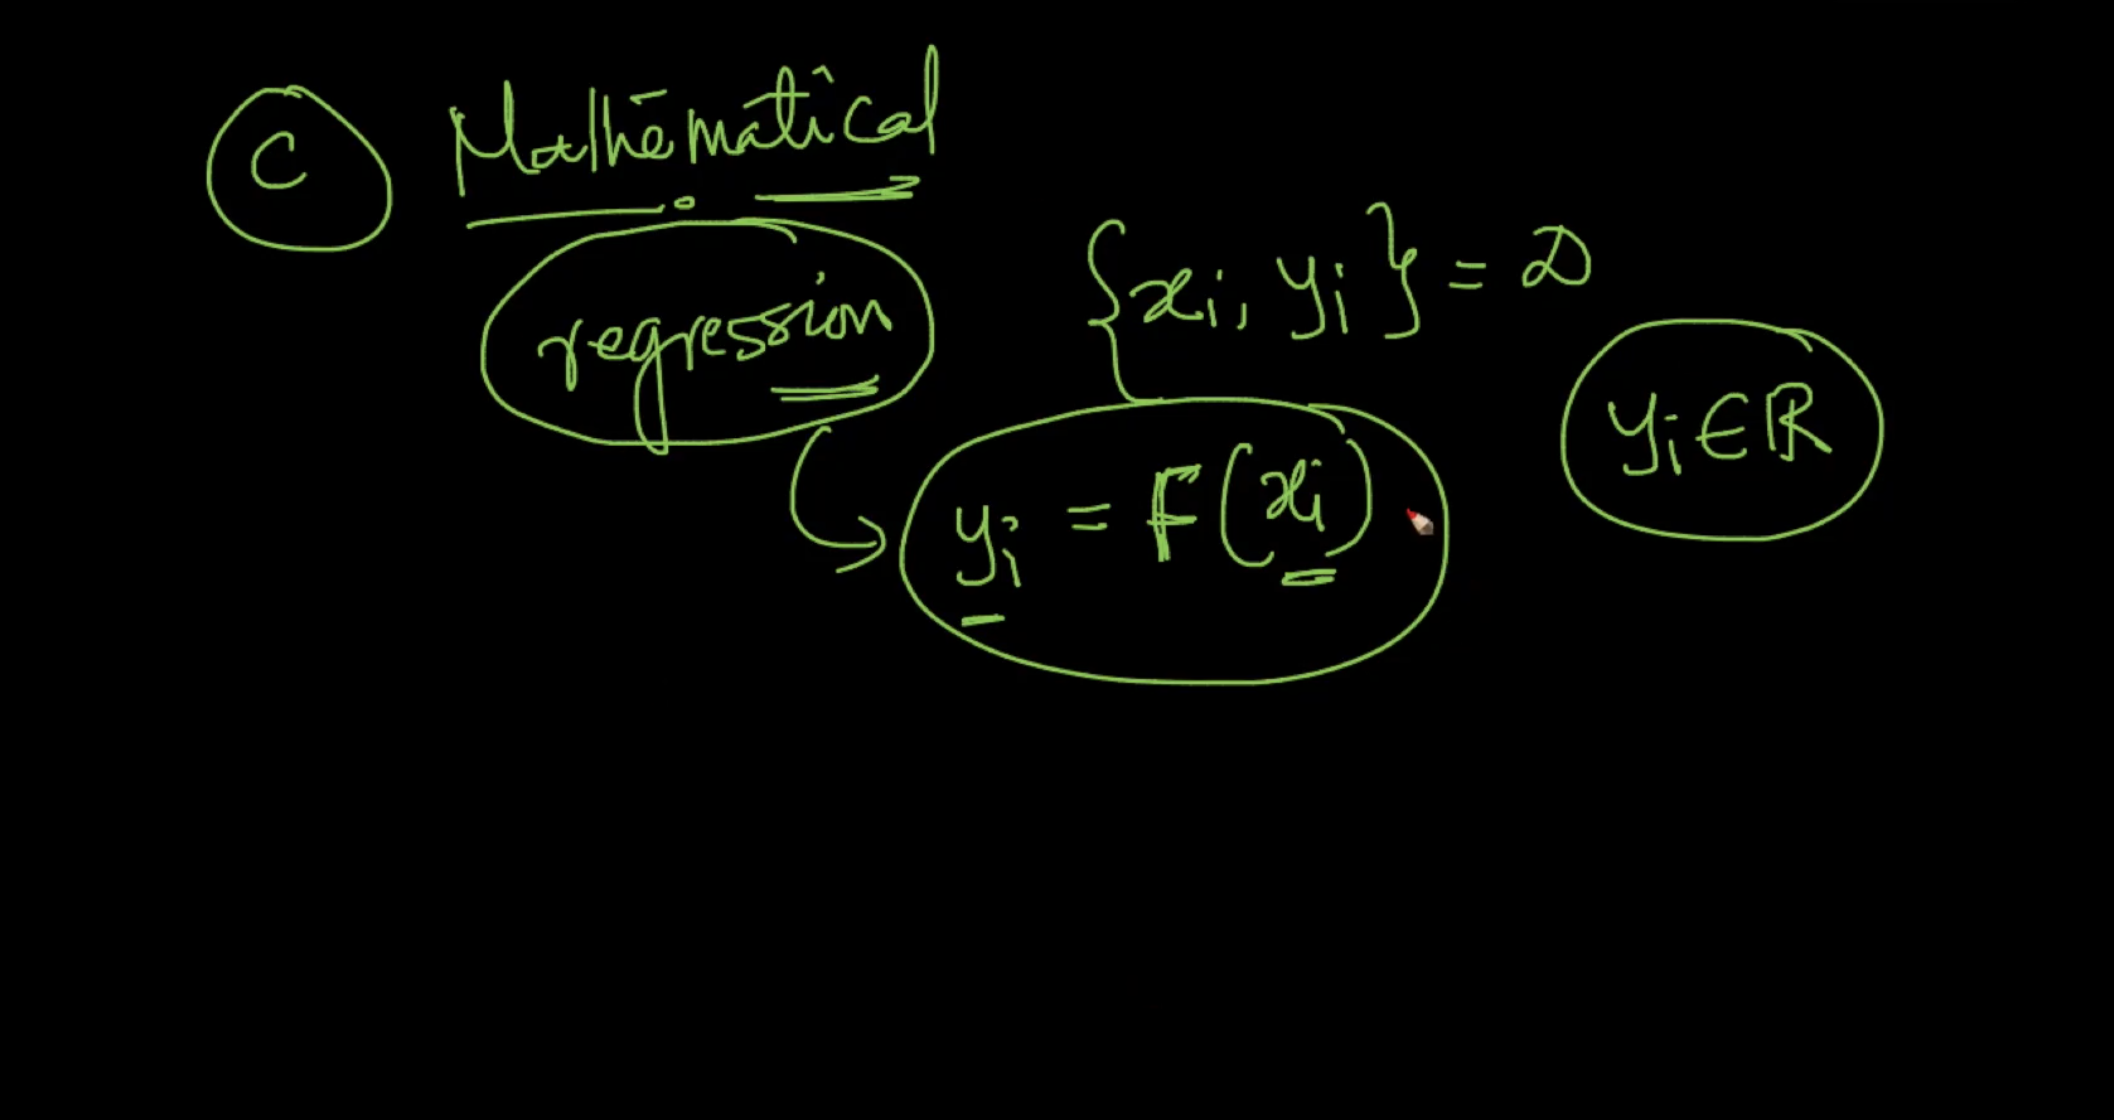 C Mathematical
regression
{xi, yi} = D
yi ∈ ℝ
yi = F(xi)